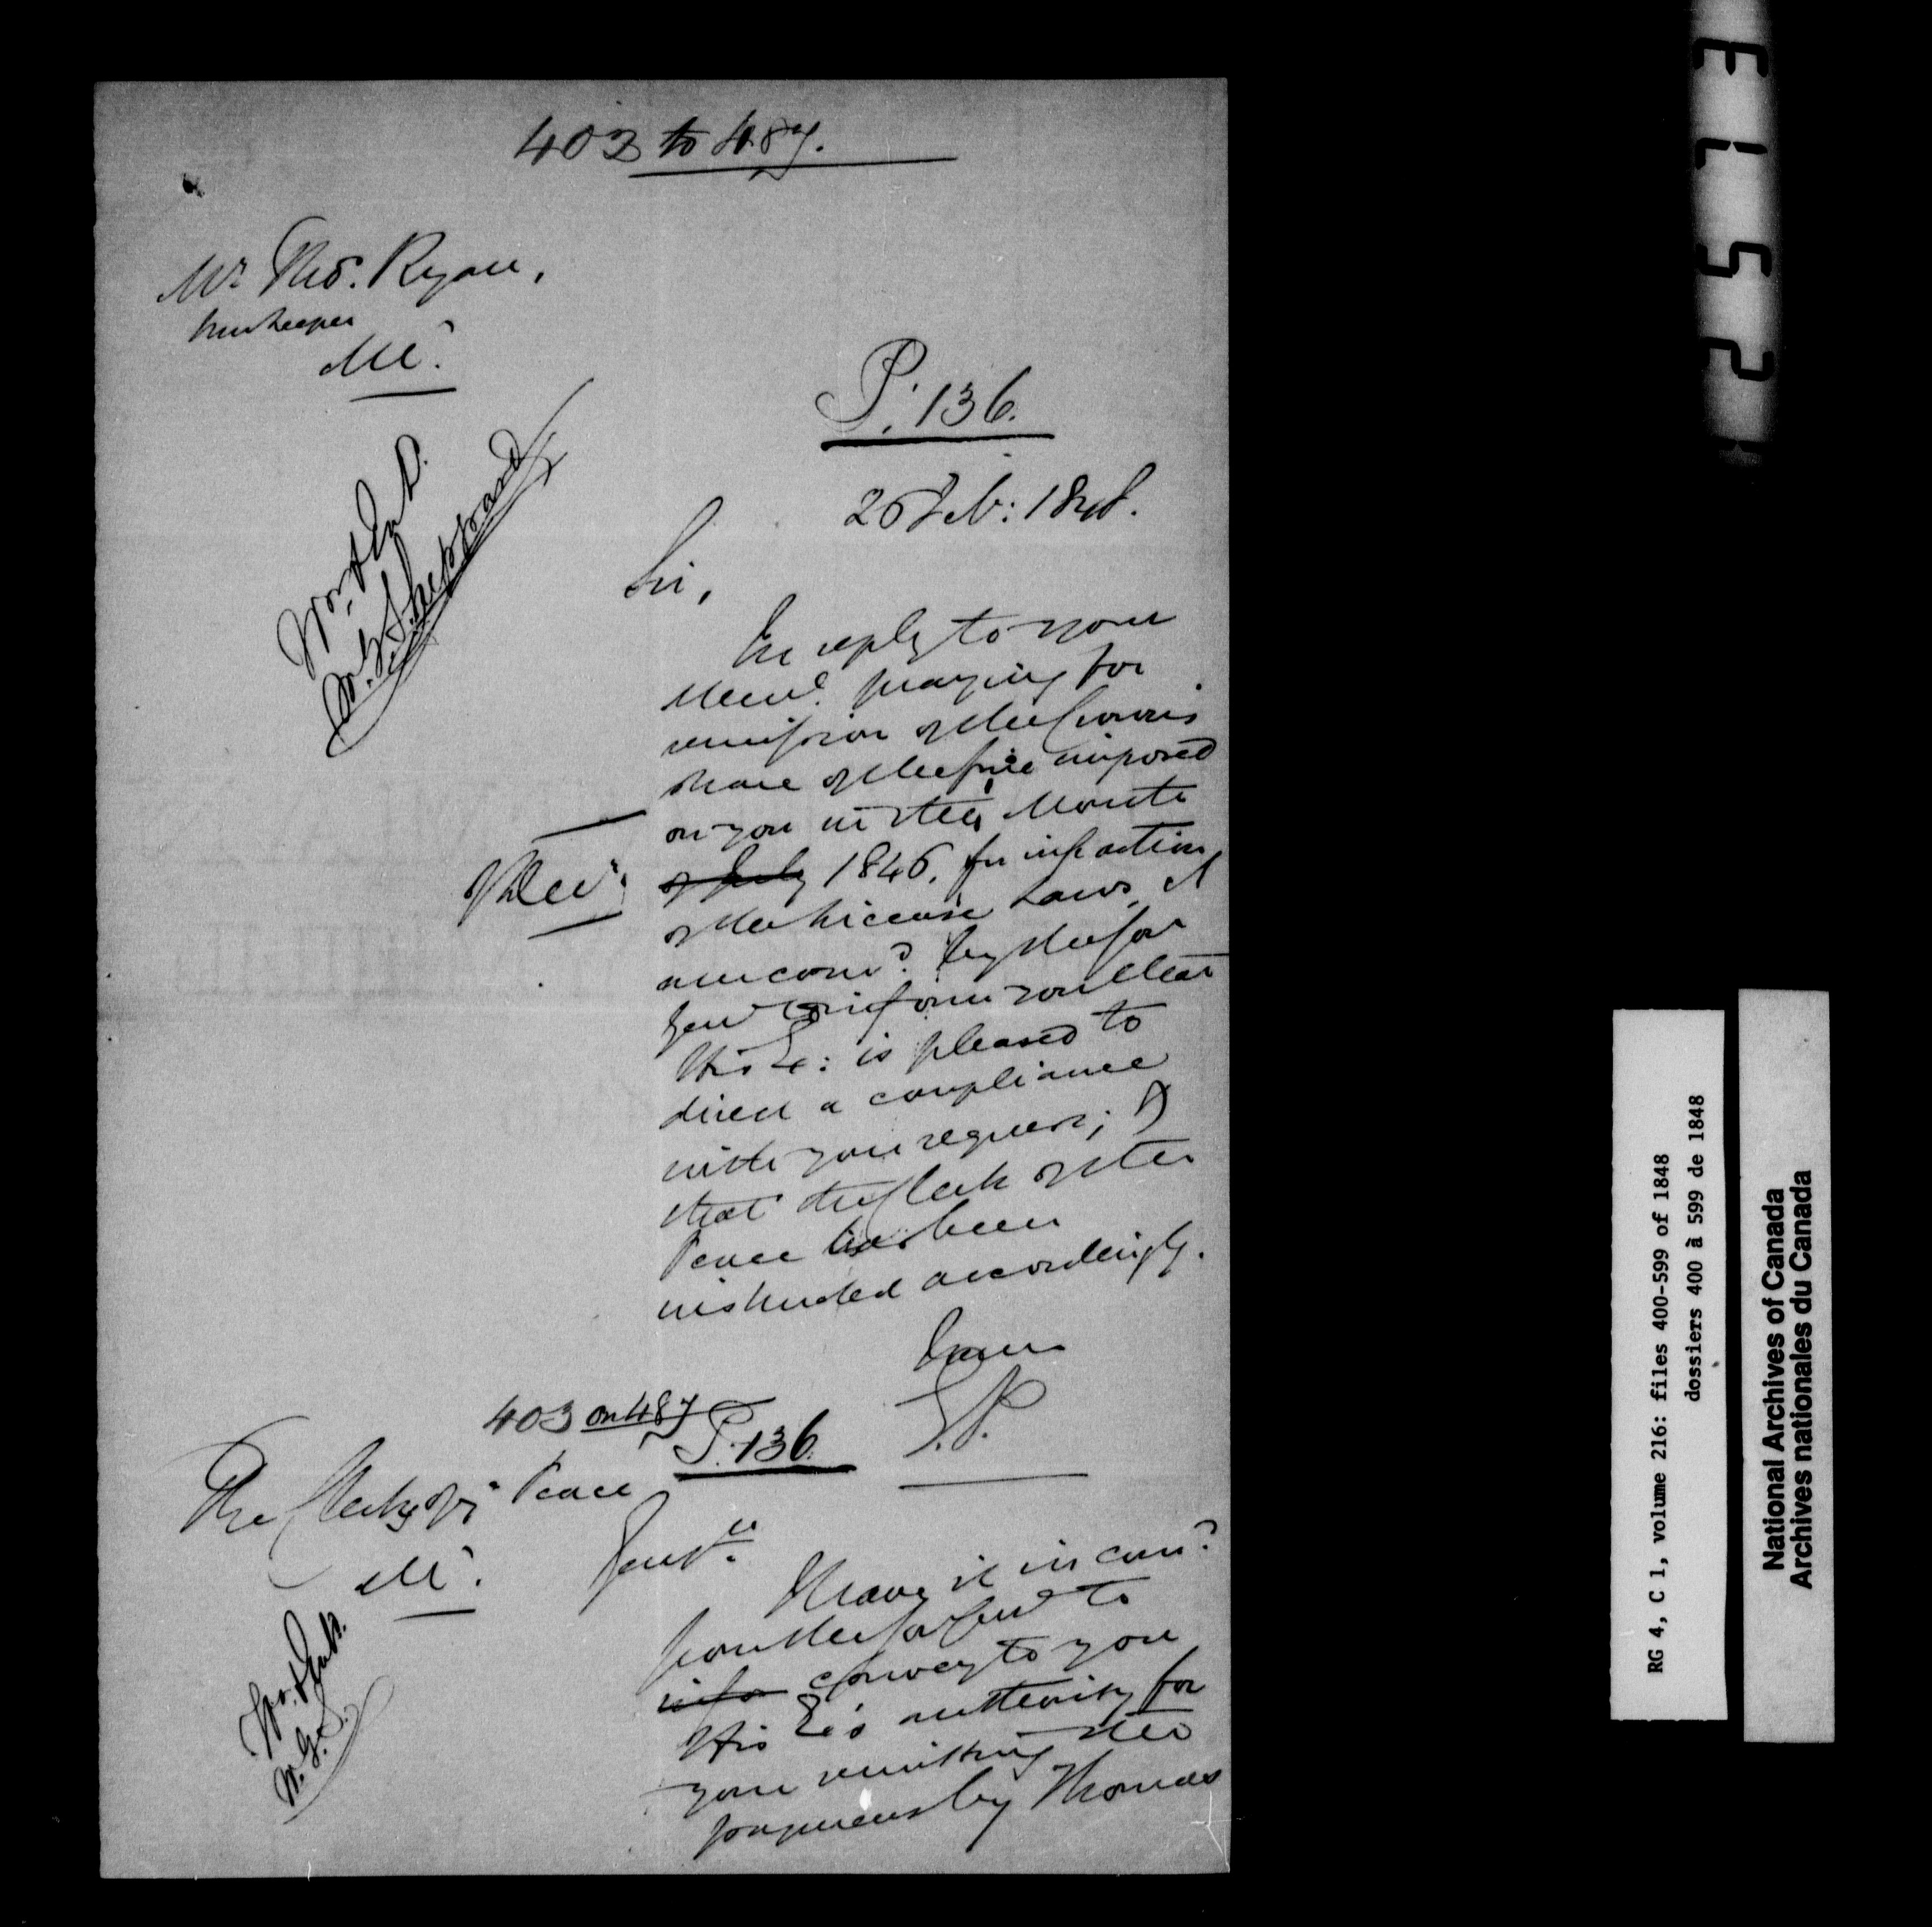 403 to 487.
Mr. Thos. Ryan,
Innkeeper
Ml.
P. 136.
26 Feb: 1848.
W. G. Sheppard
Sir,
In reply to your
Meml. praying for
remission of the Crown's
share of the fine imposed
on you in the Month
of Decr.
of July 1846. for infraction
of the License Laws, I
am comd. by the Govr
Genl to inform you that
His Ex: is pleased to
direct a compliance
with your request; &
that the Clerk of the
Peace has been
instructed accordingly.
I am
403 on 487
P. 136.
The Clerk of ye Peace
Ml.
Gentn.
I have it in comd.
from the Gov Genl to
infor convey to you
His Ex's authority for
your remitting the
payment by Thomas
W. G. S.
3152
RG 4, C 1, volume 216: files 400-599 of 1848
dossiers 400 à 599 de 1848
National Archives of Canada
Archives nationales du Canada